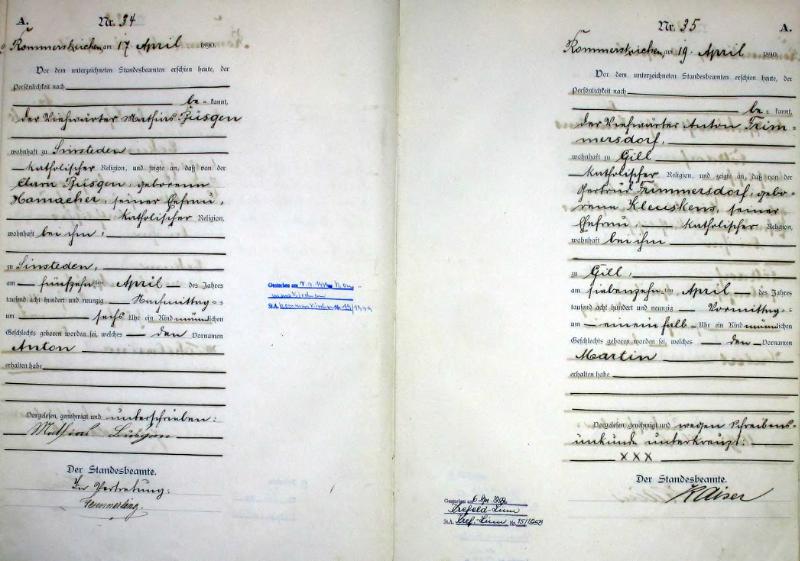 A. Nr. 34
Rommerskirchen, am 17 April 1890.
Vor dem unterzeichneten Standesbeamten erschien heute, der
Persönlichkeit nach
be-kannt,
der Viehwärter Mathias Büsgen
wohnhaft zu Sinsteden
katholischer Religion, und zeigte an, daß von der
Büsgen, geborenen
Hamacher, seiner Ehefrau,
katholischer Religion,
wohnhaft bei ihm,
zu Sinsteden,
am fünfzehn ten April des Jahres
tausend acht hundert und neunzig Nachmittag-s
um sechs Uhr ein Kind männlichen
Geschlechts geboren worden sei, welches den Vornamen
Anton
erhalten habe
Vorgelesen, genehmigt und unterschrieben:
Mathias Büsgen
Der Standesbeamte.
In Vertretung:
Gestorben am
St.A.
Nr. 35 A.
Rommerskirchen, am 19. April 1890
Vor dem unterzeichneten Standesbeamten erschien heute, der
Persönlichkeit nach
be-kannt,
der Viehwärter Anton Trim-
mersdorf,
wohnhaft zu Gill
katholischer Religion, und zeigte an, daß von der
Gertrud Trimmersdorf, gebo-
renen Kleuskens, seiner
Ehefrau katholischer Religion,
wohnhaft bei ihm
zu Gill,
am siebenzehn ten April des Jahres
tausend acht hundert und neunzig Vormittag-s
um ein einhalb Uhr ein Kind männlichen
Geschlechts geboren worden sei, welches den Vornamen
Martin
erhalten habe
Vorgelesen, genehmigt und wegen Schreibens-
unkunde unterkreuzt:
XXX
Der Standesbeamte.
Kaiser
Gestorben am
Krefeld-Linn
St.A. Kref.-Linn Nr.